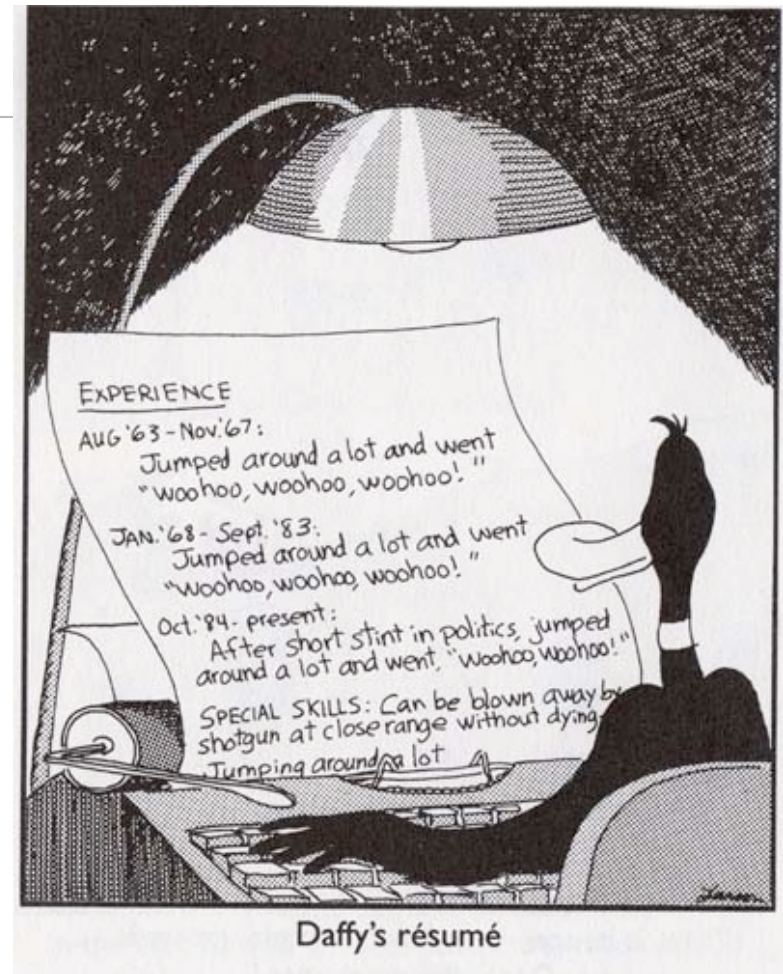 EXPERIENCE
AUG '63 - Nov. '67:
Jumped around a lot and went
"woohoo, woohoo, woohoo!"
JAN. '68 - Sept. '83:
Jumped around a lot and went
"woohoo, woohoo, woohoo!"
Oct. '84 - present:
After short stint in politics, jumped
around a lot and went, "woohoo, woohoo!"
SPECIAL SKILLS: Can be blown away by
shotgun at close range without dying
Jumping around a lot
Larson
Daffy's résumé